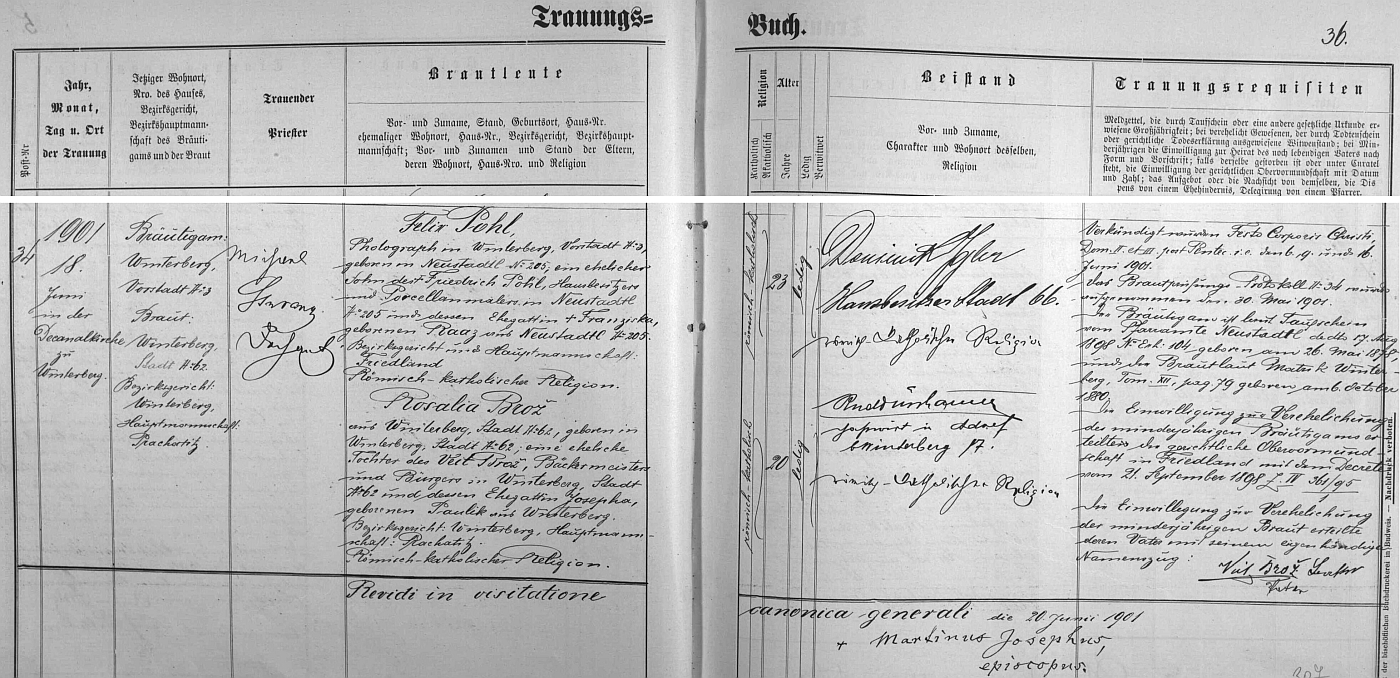 Trauungs=
Buch.
36.
Post-Nr
Jahr,
Monat,
Tag u. Ort
der Trauung
Jetziger Wohnort,
Nro. des Hauses,
Bezirksgericht,
Bezirkshauptmann-
schaft des Bräuti-
gams und der Braut
Trauender
Priester
Brautleute
Vor- und Zuname, Stand, Geburtsort, Haus-Nr.
ehemaliger Wohnort, Haus-Nr., Bezirksgericht, Bezirkshaupt-
mannschaft; Vor- und Zunamen und Stand der Eltern,
deren Wohnort, Haus-Nro. und Religion
Religion
Katholisch
Akatholisch
Alter
Jahre
Ledig
Verwitwet
Beistand
Vor- und Zuname,
Charakter und Wohnort desselben,
Religion
Trauungsrequisiten
Meldzettel, die durch Taufschein oder eine andere gesetzliche Urkunde er-
wiesene Großjährigkeit; bei verehelicht Gewesenen, der durch Todtenschein
oder gerichtliche Todeserklärung ausgewiesene Witwenstand; bei Min-
derjährigen die Einwilligung zur Heirat des noch lebendigen Vaters nach
Form und Vorschrift; falls derselbe gestorben ist oder unter Curatel
steht, die Einwilligung der gerichtlichen Obervormundschaft mit Datum
und Zahl; das Aufgebot oder die Nachsicht von demselben, die Dis
pens von einem Ehehindernis, Delegirung von einem Pfarrer.
34
1901
18.
Juni
in der
Decanalkirche
zu
Winterberg.
Bräutigam:
Winterberg,
Vorstadt No 3
Braut:
Winterberg,
Stadt No 62.
Bezirksgericht:
Winterberg,
Hauptmannschaft:
Prachatitz
Michael
Dechant
Felix Pohl,
Photograph in Winterberg, Vorstadt No 3,
geboren in Neustadtl No 205, ein ehelicher
Sohn des + Friedrich Pohl, Hausbesitzers
und Porcellanmalers in Neustadtl
No 205 und dessen Ehegattin + Franziska,
geborenen Raaz aus Neustadtl No 205.
Bezirksgericht und Hauptmannschaft:
Friedland
Römisch-katholischer Religion.
Rosalia Brož
aus Winterberg, Stadt No 62, geboren in
Winterberg, Stadt No 62; eine eheliche
Tochter des Veit Brož, Bäckermeisters
und Bürgers in Winterberg, Stadt
No 62 und dessen Ehegattin Josepha,
geborenen Paulik aus Winterberg.
Bezirksgericht: Winterberg, Hauptmann-
schaft: Prachatitz.
Römisch-katholischer Religion.
römisch-katholisch
23
ledig
römisch-katholisch
20
ledig
Dominik
Hausbesitzer Stadt 66.
römisch-katholischer Religion
Winterberg
römisch-katholischer Religion
Verkündigt worden Festo Corporis Christi,
Dom. II. et III. post Pentec. i.e. den 6. 9. und 16.
Juni 1901.
Das Brautprüfungs Protokoll No 34 wurde
aufgenommen den 30. Mai 1901.
Der Bräutigam ist laut Taufschein
vom Pfarramte Neustadtl dedto 17. Aug
1898 No Exh. 104 geboren am 26. Mai 1878
und die Braut laut Matrik Winter-
berg, Tom. XII, pag. 79 geboren am 6. October
1880.
Die Einwilligung zur Verehelichung
des minderjährigen Bräutigams er-
teilte die gerichtliche Obervormund-
schaft in Friedland mit dem Decrete
vom 21. September 1898
Die Einwilligung zur Verehelichung
der minderjährigen Braut erteilte
deren Vater mit seinem eigenhändigen
Namenszug:
Veit Brož
Vater
Revidi in visitatione
canonica generali die 20. Junii 1901
+ Martinus Josephus,
episcopus.
307
der bischöflichen Buchdruckerei in Budweis. — Nachdruck verboten.